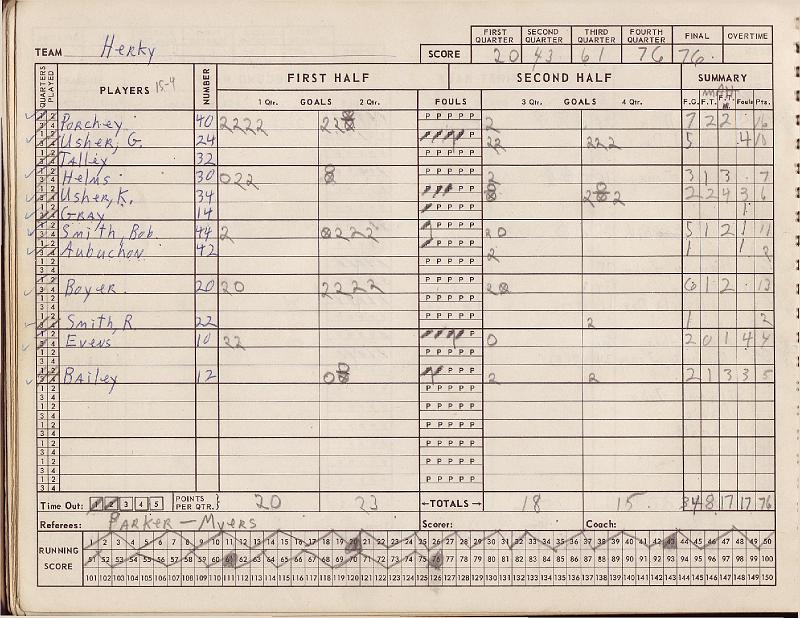 FIRST QUARTER SECOND QUARTER THIRD QUARTER FOURTH QUARTER FINAL OVERTIME
TEAM Herky SCORE 20 43 61 76 76.
QUARTERS PLAYED PLAYERS 15-9 NUMBER FIRST HALF SECOND HALF SUMMARY
1 Qtr. GOALS 2 Qtr. FOULS 3 Qtr. GOALS 4 Qtr. F.G. F.T. F.T. M. Fouls Pts.
Porchey 40 2222 22 P P P P P 2 7 2 2 16
Usher, G. 24 P P P P P 22 222 5 4 10
Talley 32 P P P P P
Helms 30 022 P P P P P 2 3 1 3 7
Usher, K. 34 P P P P P 2 2 2 2 4 3 6
Gray 14 P P P P P 1
Smith, Bob. 44 2 222 P P P P P 20 5 1 2 1 11
Aubuchon 42 P P P P P 2 1 1 2
Boyer 20 20 2222 P P P P P 2 6 1 2 13
Smith, R. 22 P P P P P 2 1 2
Evens 10 22 P P P P P 0 2 0 1 4 4
Bailey 12 0 P P P P P 2 2 2 1 3 3 5
Time Out: 1 2 3 4 5 POINTS PER QTR. 20 23 ←TOTALS→ 18 15. 34 8 17 17 76
Referees: Parker – Myers Scorer: Coach:
1 2 3 4 5 6 7 8 9 10 11 12 13 14 15 16 17 18 19 20 21 22 23 24 25 26 27 28 29 30 31 32 33 34 35 36 37 38 39 40 41 42 43 44 45 46 47 48 49 50
RUNNING SCORE 51 52 53 54 55 56 57 58 59 60 61 62 63 64 65 66 67 68 69 70 71 72 73 74 75 76 77 78 79 80 81 82 83 84 85 86 87 88 89 90 91 92 93 94 95 96 97 98 99 100
101 102 103 104 105 106 107 108 109 110 111 112 113 114 115 116 117 118 119 120 121 122 123 124 125 126 127 128 129 130 131 132 133 134 135 136 137 138 139 140 141 142 143 144 145 146 147 148 149 150